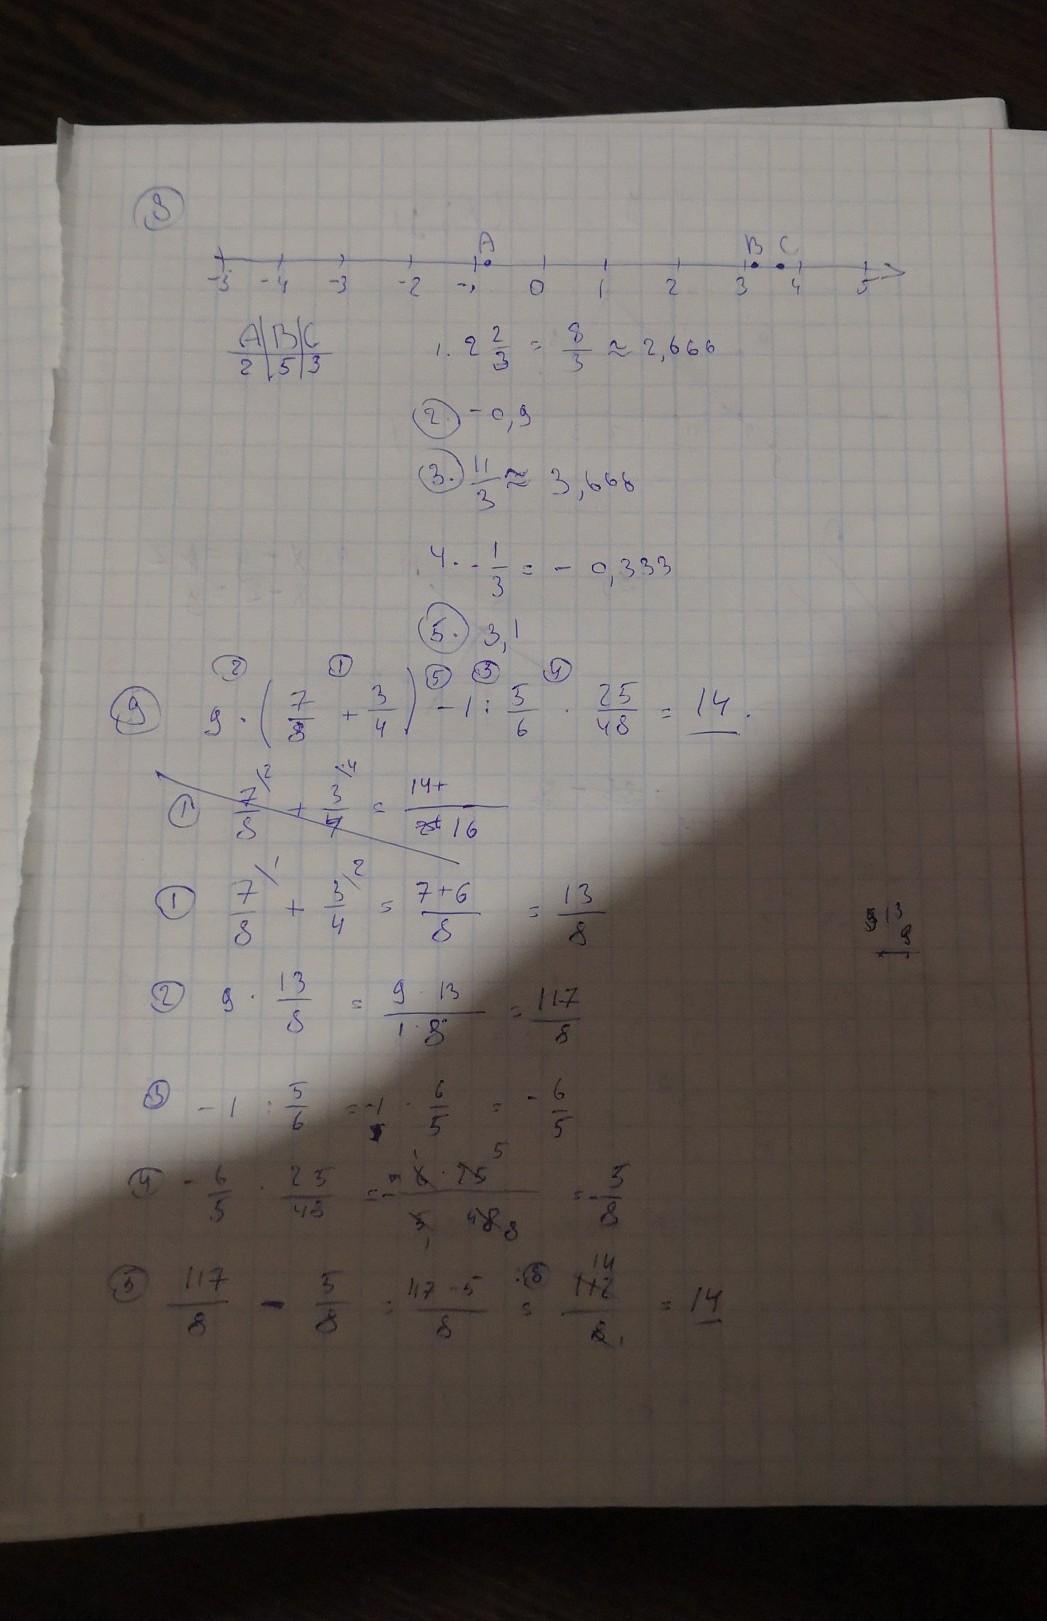 8
A B C
-5 -4 -3 -2 -1 0 1 2 3 4 5
A|B|C 1. 2 2/3 = 8/3 ≈ 2,666
2|5|3
2. -0,9
3. 11/3 ≈ 3,666
4. -1/3 = - 0,333
5. 3,1
② ① ⑤ ③ ④
9 9 · (7/8 + 3/4) - 1 : 5/6 · 25/48 = 14.
① 7/8 + 3/7 = 14+/16
① 7/8 + 3/4 = 7+6/8 = 13/8
13
9
② 9 · 13/8 = 9 · 13/1 · 8 = 117/8
③ - 1 : 5/6 = -1 · 6/5 = - 6/5
④ - 6/5 · 25/48 = - 6 · 25/5 · 48 = - 5/8
⑤ 117/8 - 5/8 = 117-5/8 = 112/8 = 14